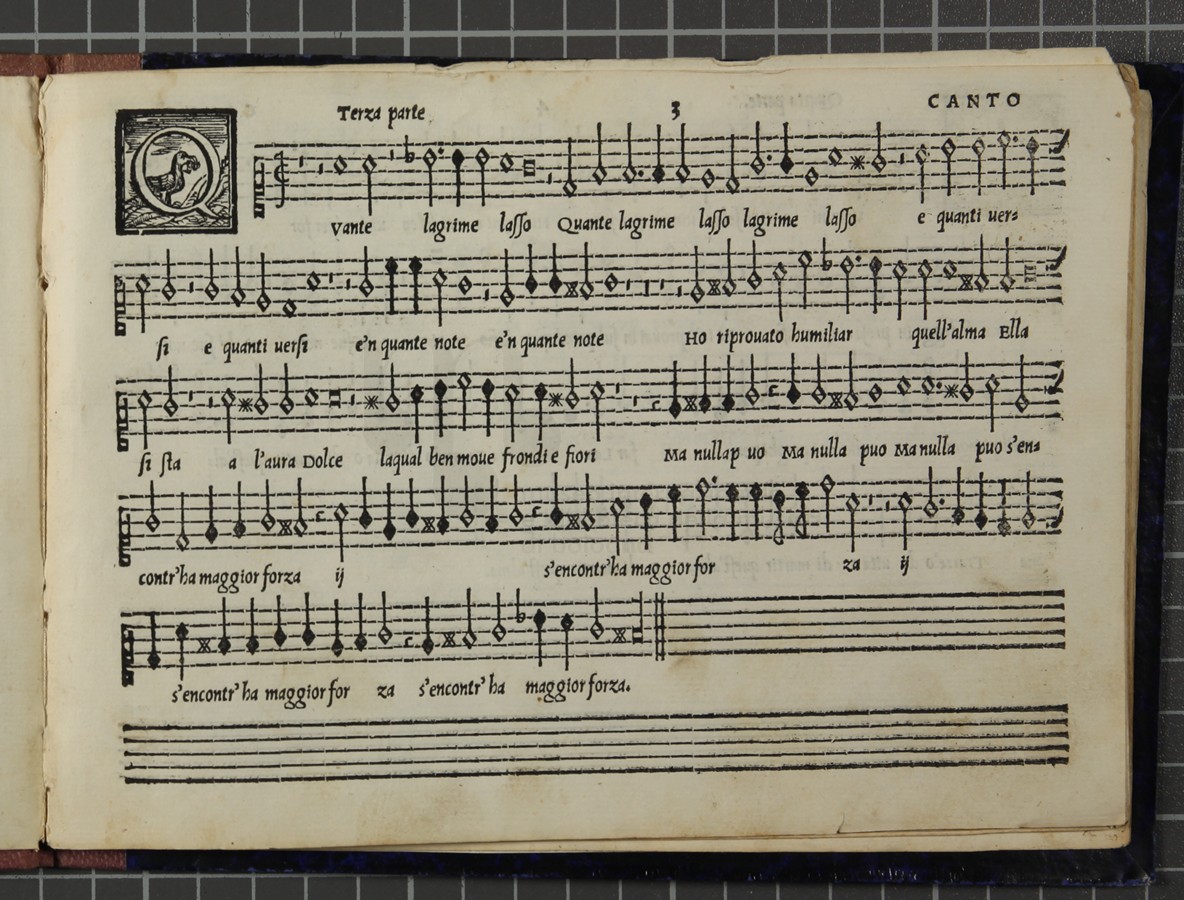 Terza parte 3 CANTO
QVante lagrime lasso Quante lagrime lasso lagrime lasso e quanti uer=
si e quanti uersi e'n quante note e'n quante note Ho riprouato humiliar quell'alma Ella
si sta a l'aura Dolce laqual ben moue frondi e fiori Ma nullap uo Ma nulla puo Ma nulla puo s'en=
contr'ha maggior forza ij s'encontr'ha maggior for za ij
s'encontr'ha maggior for za s'encontr'ha maggior forza.